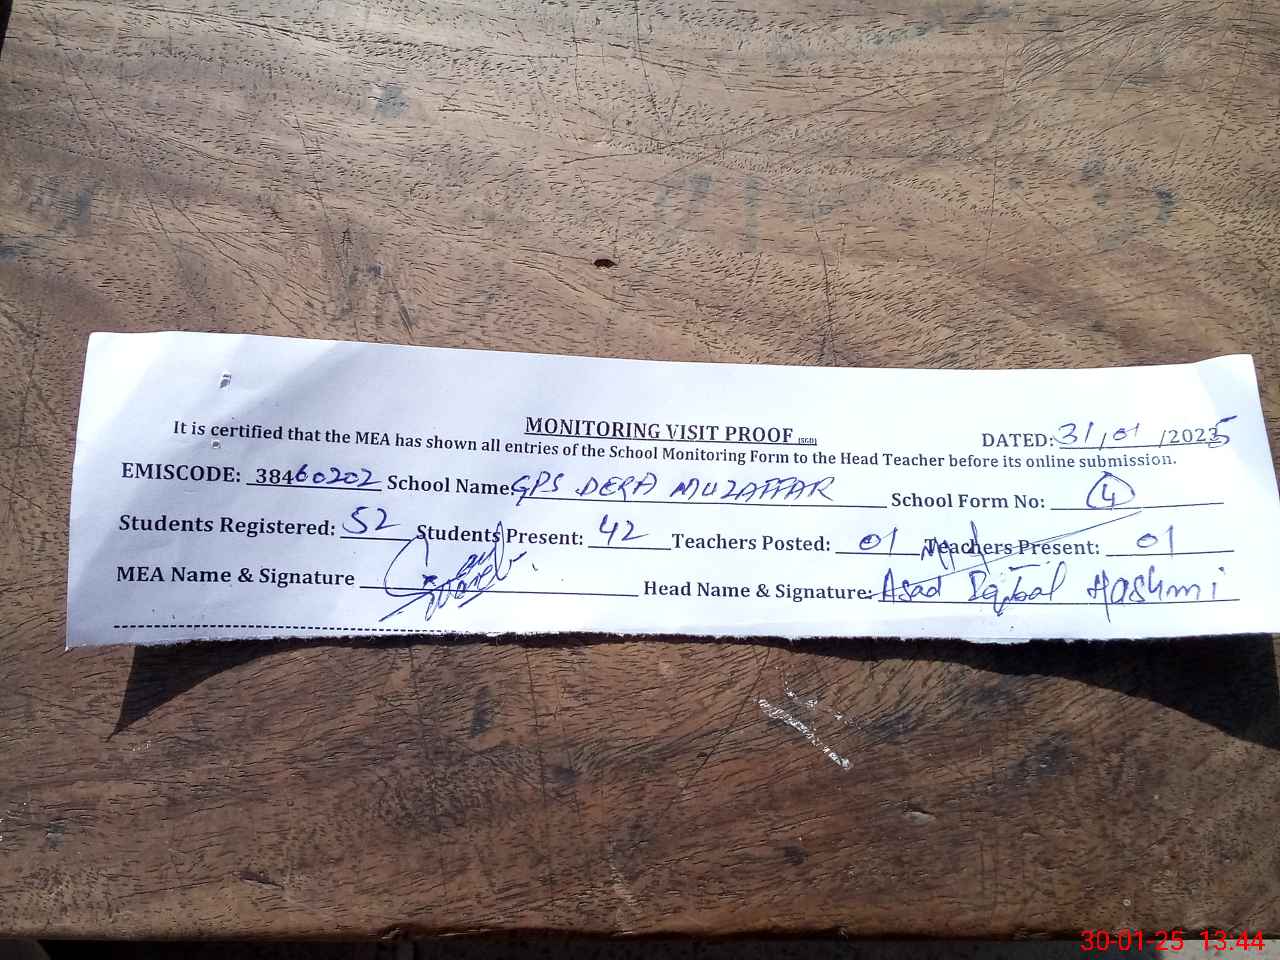 MONITORING VISIT PROOF (SGD)
DATED: 31/01/2025
It is certified that the MEA has shown all entries of the School Monitoring Form to the Head Teacher before its online submission.
EMISCODE: 38460202 School Name: GPS DERA MUZAFFAR School Form No: 4
Students Registered: 52 Students Present: 42 Teachers Posted: 01 Teachers Present: 01
MEA Name & Signature Head Name & Signature: Asad Iqbal Hashmi
30-01-25 13:44